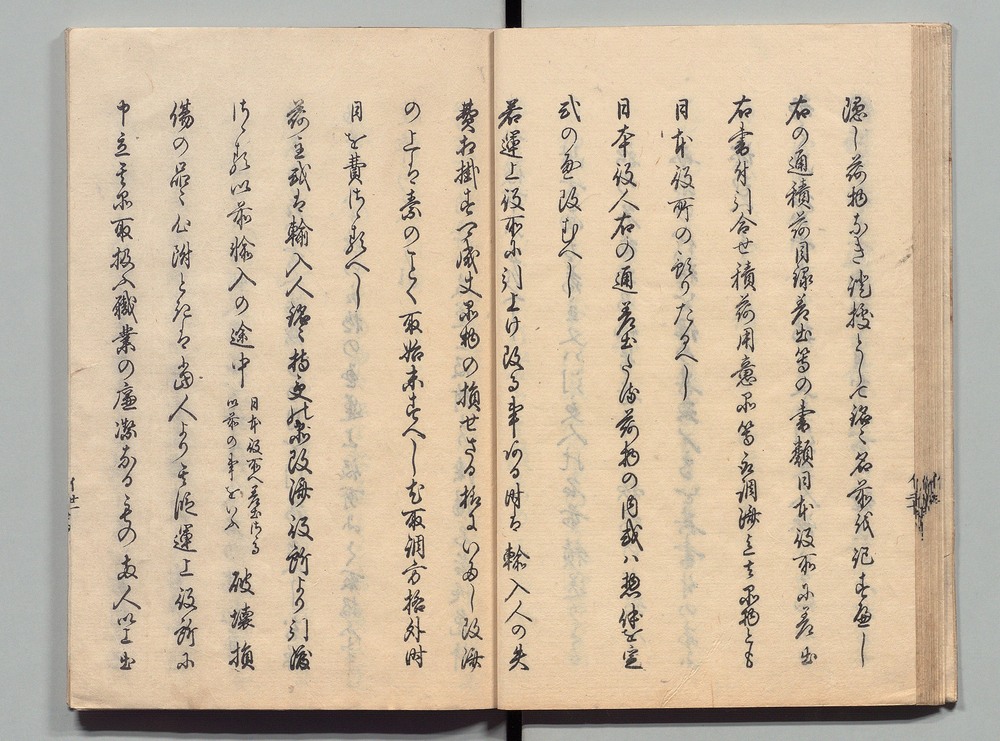 隠し荷物なき證拠として銘々名前を記すへし
右の通積荷目録差出等の書類日本役所に差出
右書付引合せ積荷用意品等取調済之上品物とも
日本役所の預りたるへし
日本役人右の通差出たる荷物の内或ハ惣体を定
式の通改むへし
若運上役所に引上け改る事ある時は輸入人の失
費相掛さす可成丈品物の損せさる様にいたし改済
の上は素のことく取始末すへし尤取調方格外時
日を費さゝるへし
荷主或は輸入人銘々持主の品改済役所より引渡
さゝる以前輸入の途中
日本役所へ差出さゝる
以前の事をいふ
破壊損
傷の品々心附ときは当人より其段運上役所に
申立其品取扱ふ職業の廉潔なるものを両人以上出